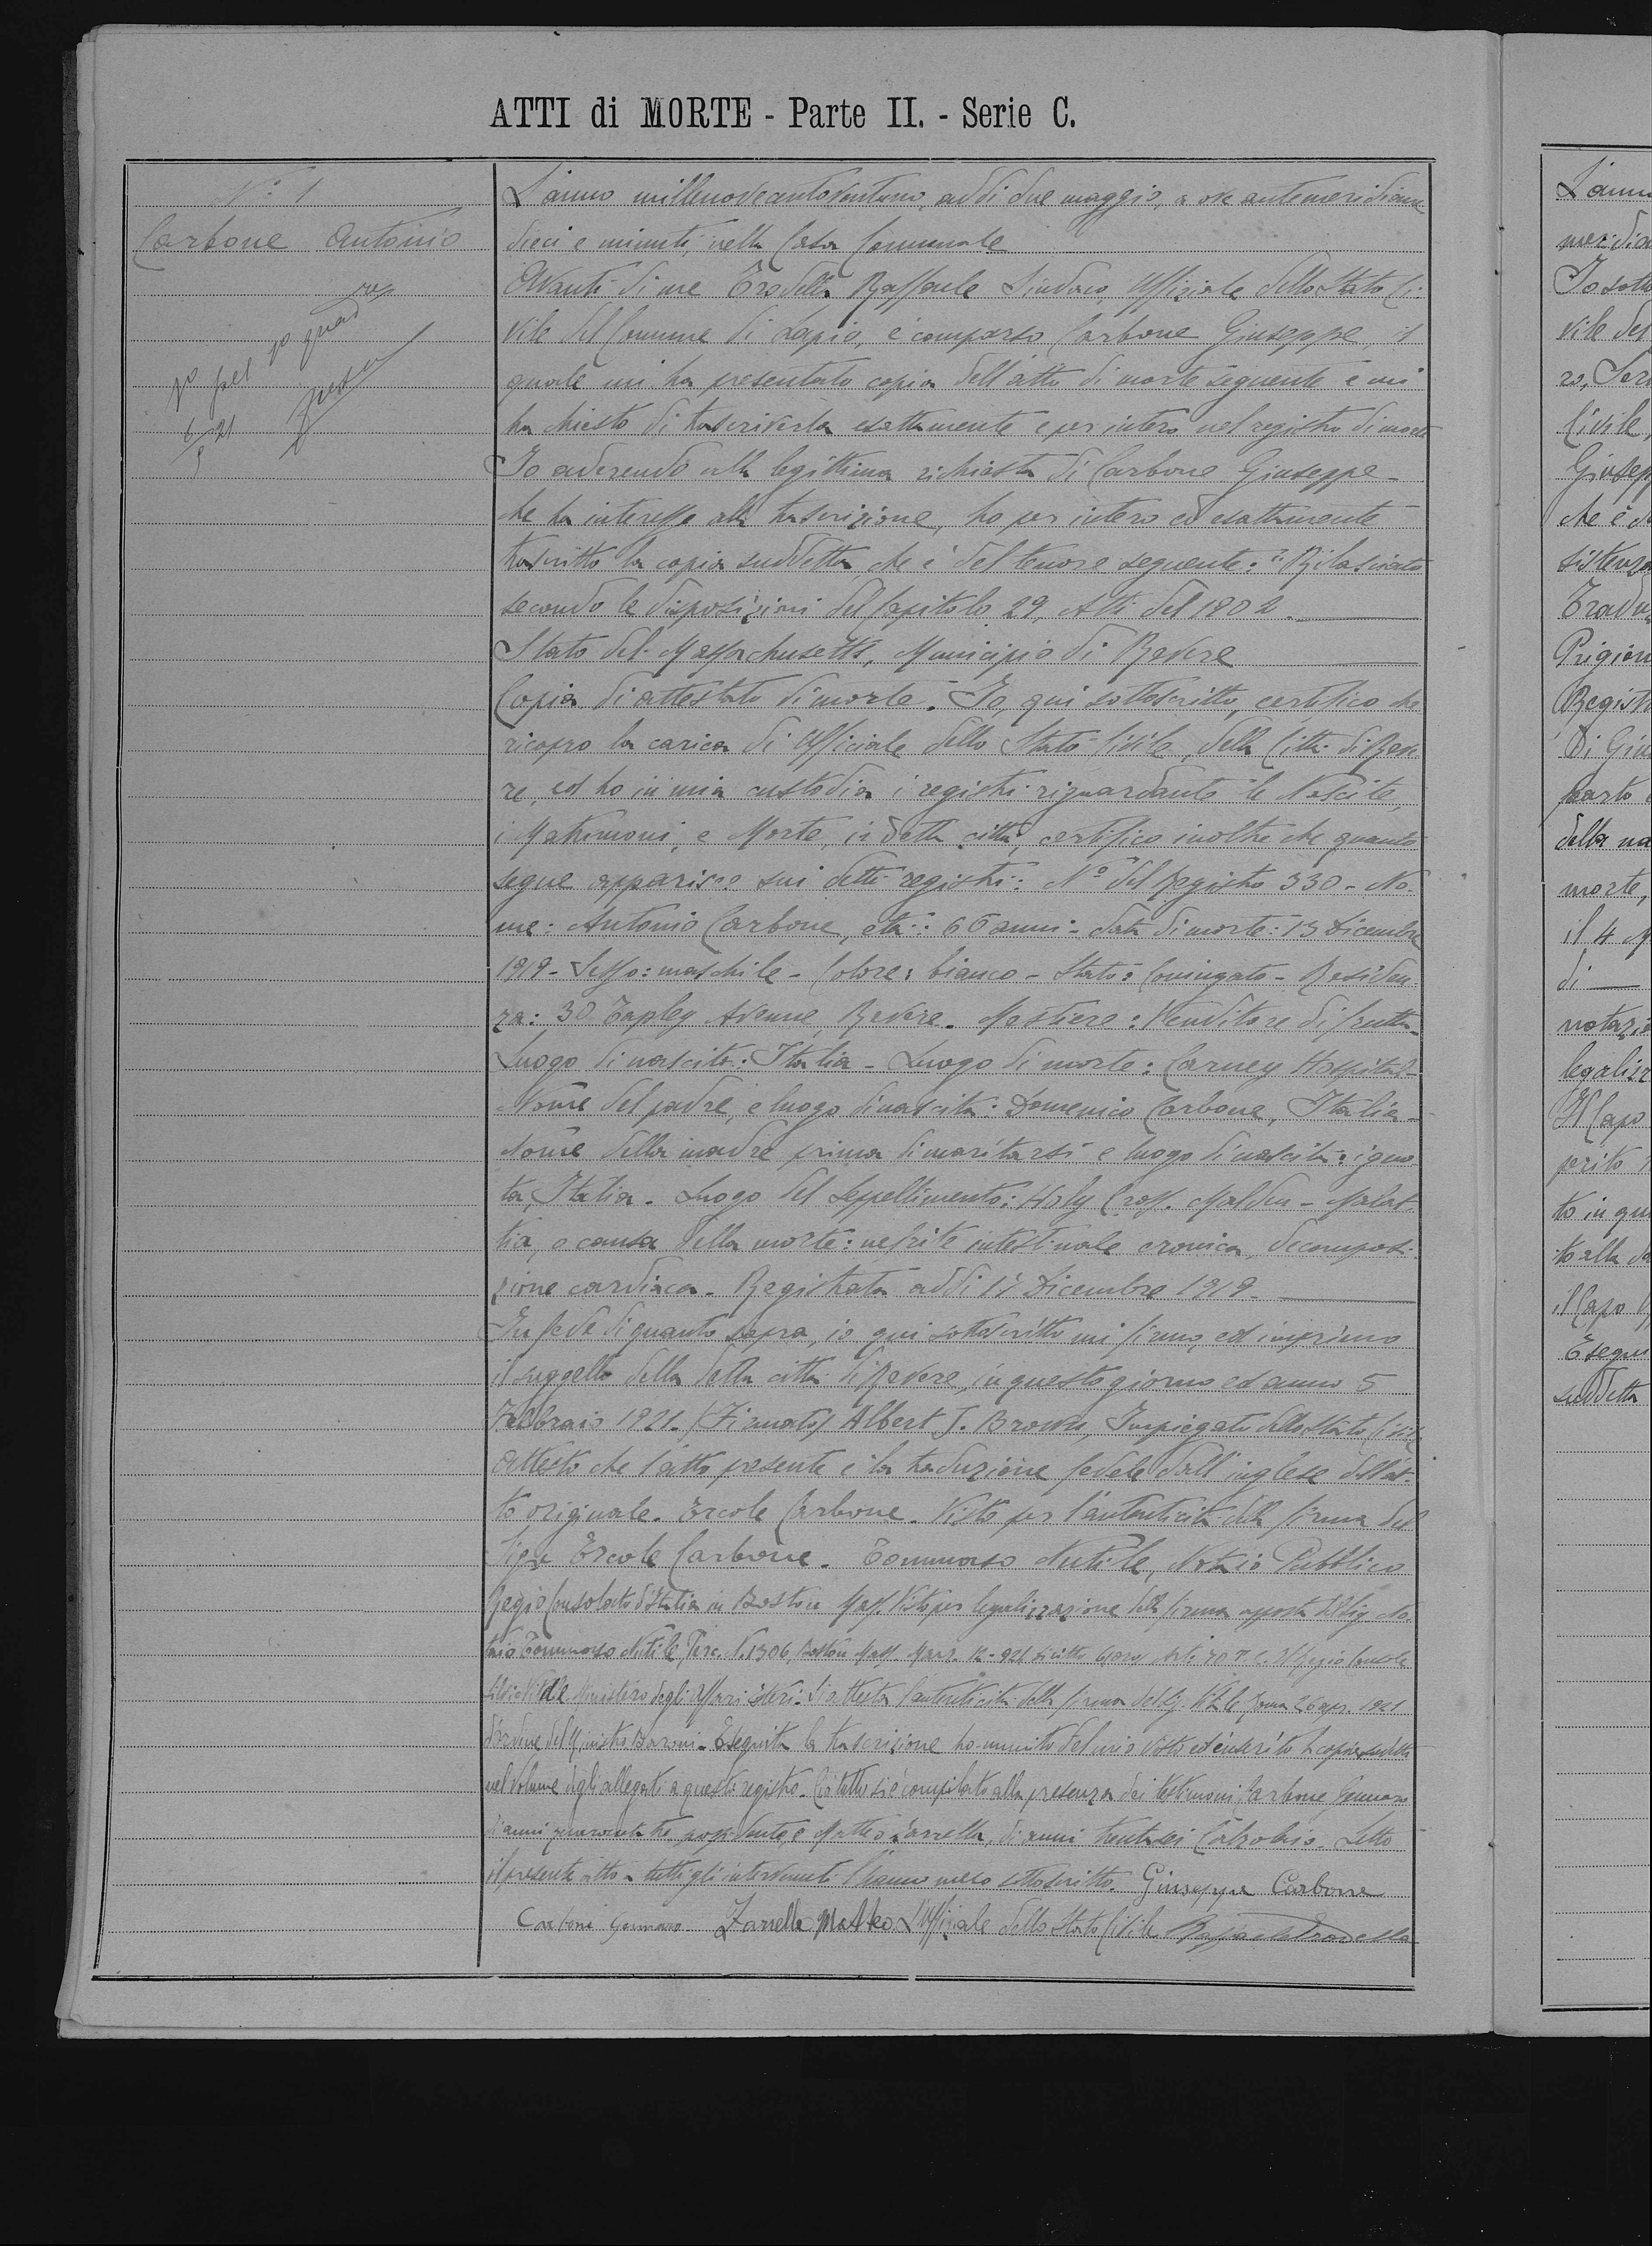 ATTI di MORTE - Parte II. - Serie C.
N.° 1
Carbone Antonio
L'anno millenovecentoventuno, addì due maggio, a ore antemeridiane
dieci e minuti, nella Casa Comunale
Avanti di me Trodella Raffaele Sindaco, Uffiziale dello Stato Ci-
vile del Comune di Lapio, è comparso Carbone Giuseppe, il
quale mi ha presentato copia dell'atto di morte seguente e mi
ha chiesto di trascriverla esattamente e per intero nel registro di morte
Io aderendo alla legittima richiesta di Carbone Giuseppe
che ha interesse alla trascrizione, ho per intero ed esattamente
trascritto la copia suddetta che è del tenore seguente: Rilasciato
secondo le disposizioni del Capitolo 29, Atti del 1902
Stato del Massachusetts, Municipio di Revere
Copia di attestato di morte. Io, qui sottoscritto, certifico che
ricopro la carica di Ufficiale dello Stato Civile, della Città di Reve-
re, ed ho in mia custodia i registri riguardante le Nascite,
i Matrimoni, e Morte, in detta città, certifico inoltre che quanto
segue apparisce sui detti registri: N° del Registro 330 - No-
me: Antonio Carbone, età: 66 anni - data di morte: 13 Dicembre
1919 - Sesso: maschile - Colore: bianco - Stato: Coniugato - Residen-
za: 30 Tapley Avenue, Revere. Mestiere: Venditore di frutta -
Luogo di nascita: Italia - Luogo di morte: Carney Hospital -
Nome del padre, e luogo di nascita: Domenico Carbone, Italia -
Nome della madre prima di maritarsi e luogo di nascita: igno-
ta, Italia. Luogo del Seppellimento: Holy Cross. Malden - Malat-
tia, o causa della morte: nefrite intestinale cronica, decomposi-
zione cardiaca - Registrata addì 17 Dicembre 1919 -
In fede di quanto sopra, io qui sottoscritto mi firmo, ed imprimo
il suggello della detta città di Revere, in questo giorno ed anno 5
Febbraio 1921 - (Firmato) Albert J. Brown, Impiegato dello Stato Civile
Attesto che l'atto presente è la traduzione fedele dall'inglese dell'at-
to originale. Ercole Carbone. Visto per l'autenticità della firma del
Sigr Ercole Carbone. Tommaso Nutile, Notaio Pubblico
Regio Consolato d'Italia in Boston Mass. Visto per legalizzazione della firma apposta del Sig. No-
taio Tommaso Nutile, Perc. N. 1306, Boston Mass. Marz. 12 - 921 Art. 70 Il Regio Console
Ministero degli Affari Esteri. Si attesta l'autenticità della firma del Sig. Roma 26 apr. 1921
d'ordine del Ministro Baroni - Eseguita la trascrizione ho munito del mio visto ed inserito la copia suddetta
nel volume degli allegati a questo registro. Ciò tutto si è compilato alla presenza dei testimoni Carbone Gennaro
di anni quarantatre possidente e Matteo Zarrella, di anni trentasei Calzolaio. Letto
il presente atto a tutti gli intervenuti l'hanno meco sottoscritto. Giuseppe Carbone
Carbone Gennaro Zarrella Matteo L'Uffiziale dello Stato Civile Raffaele Trodella